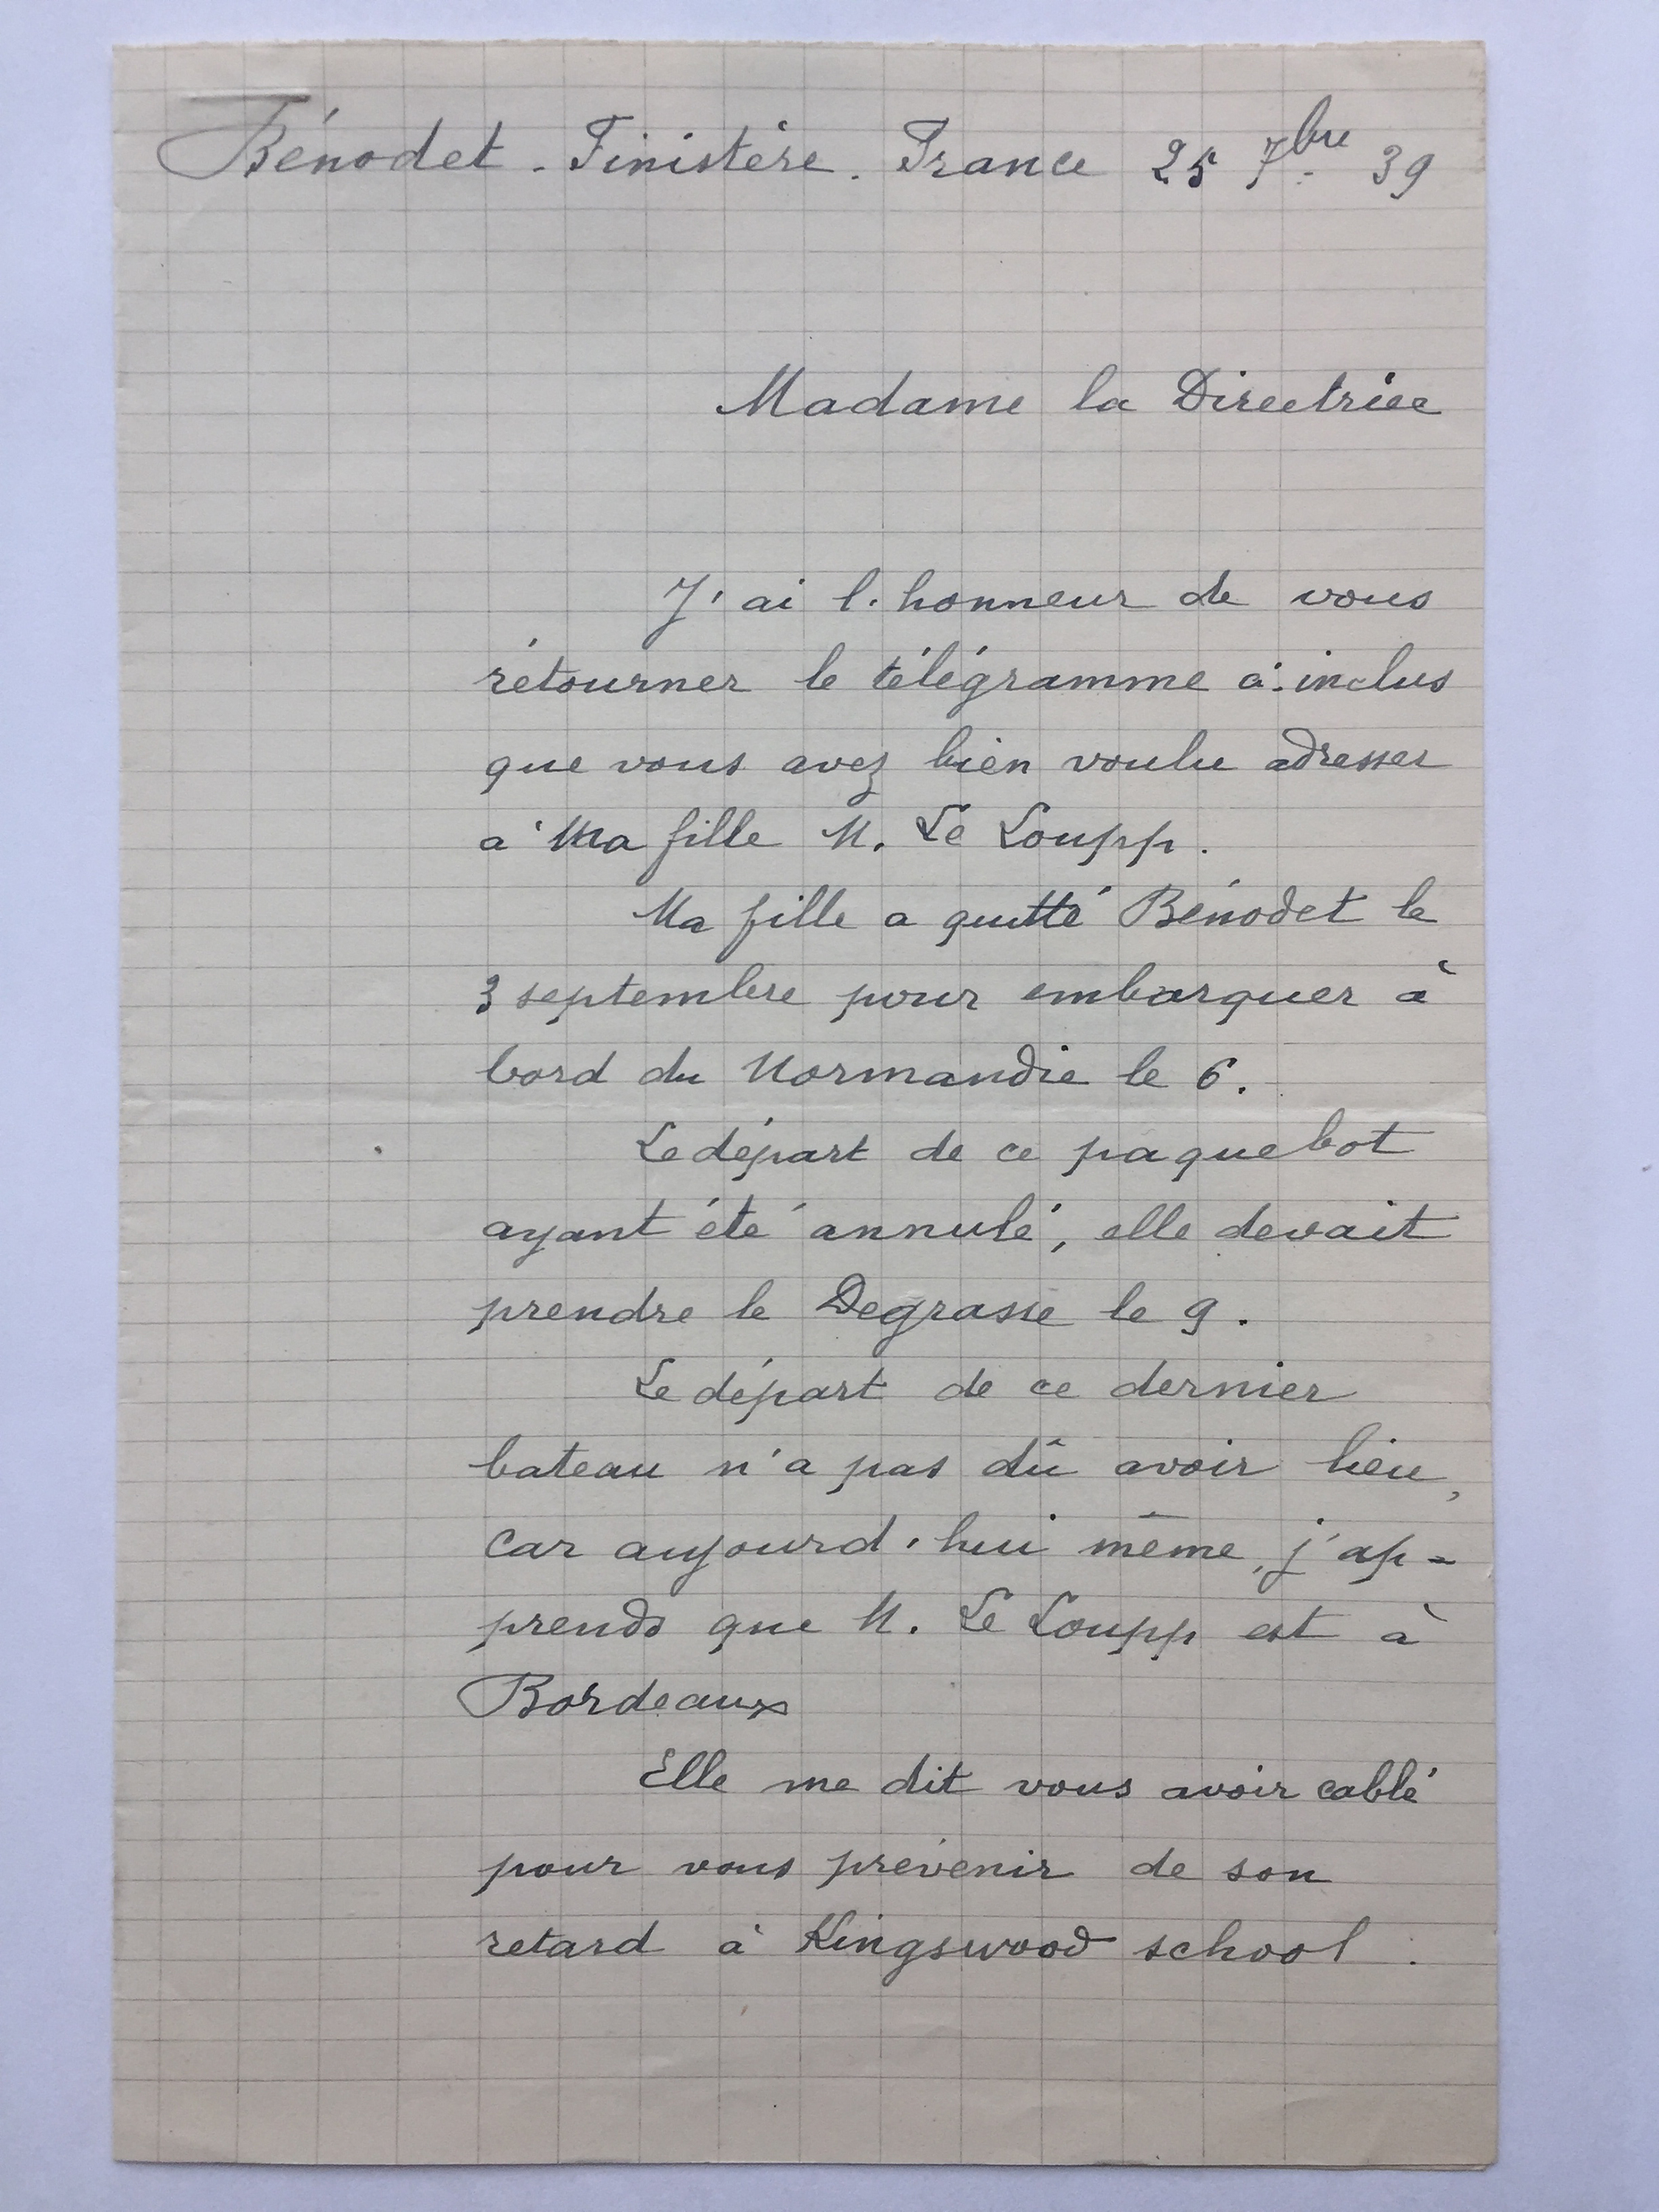 Bénodet - Finistère. France 25 7bre 39
Madame la Directrice
J'ai l'honneur de vous
rétourner le télégramme ci-inclus
que vous avez bien voulu adresser
à Ma fille M. Le Loupp.
Ma fille a quitté Bénodet le
3 septembre pour embarquer à
bord du Normandie le 6.
Le départ de ce paquebot
ayant été annulé, elle devait
prendre le Degrasse le 9.
Le départ de ce dernier
bateau n'a pas dû avoir lieu,
car aujourd'hui même, j'ap-
prends que M. Le Loupp est à
Bordeaux
Elle me dit vous avoir cablé
pour vous prévenir de son
retard à Kingswood school.